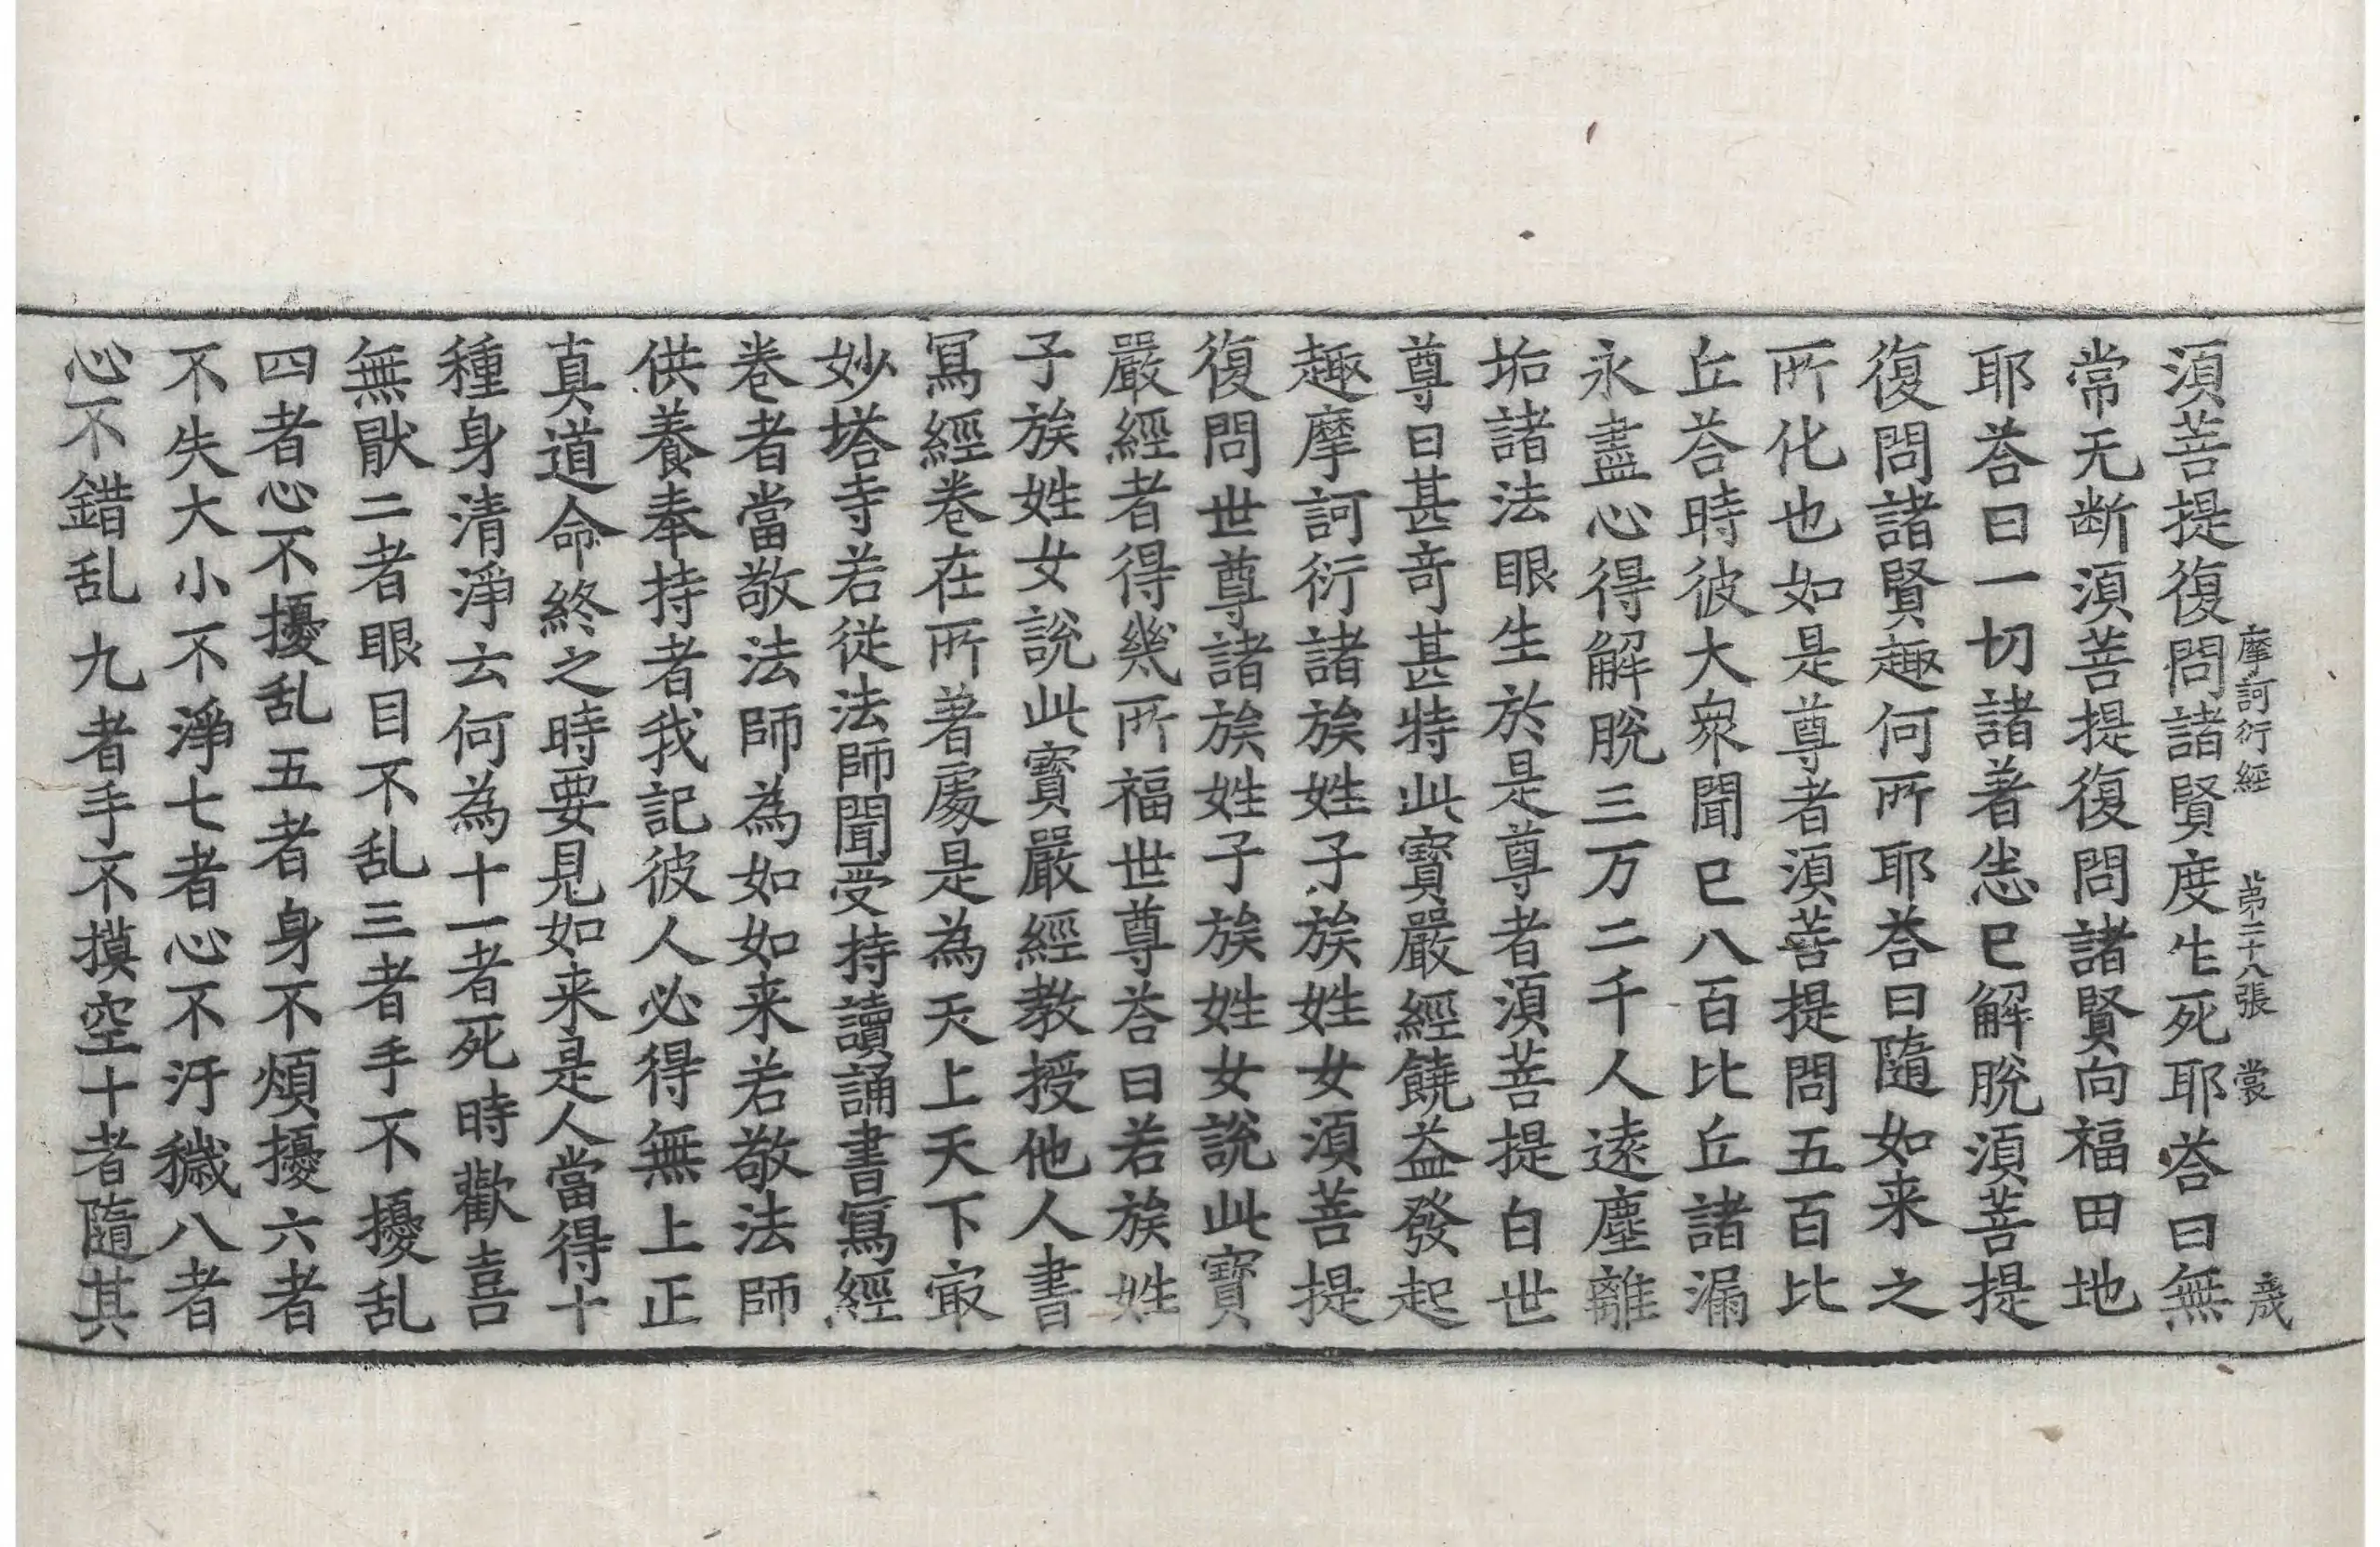 摩訶衍經 第二十八張 裳 歲
須菩提復問諸賢度生死耶荅曰無
常无断須菩提復問諸賢向福田地
耶荅曰一切諸著恙已解脫須菩提
復問諸賢趣何所耶荅曰隨如来之
所化也如是尊者須菩提問五百比
丘荅時彼大衆聞已八百比丘諸漏
永盡心得解脫三万二千人遠塵離
垢諸法眼生於是尊者須菩提白世
尊曰甚奇甚特此寶嚴經饒益發起
趣摩訶衍諸族姓子族姓女須菩提
復問世尊諸族姓子族姓女說此寶
嚴經者得幾所福世尊荅曰若族姓
子族姓女說此寶嚴經教授他人書
寫經卷在所著處是為天上天下㝡
妙塔寺若從法師聞受持讀誦書寫經
卷者當敬法師為如如来若敬法師
供養奉持者我記彼人必得無上正
真道命終之時要見如来是人當得十
種身清淨云何為十一者死時歡喜
無猒二者眼目不乱三者手不擾乱
四者心不擾乱五者身不煩擾六者
不失大小不淨七者心不汙穢八者
心不錯乱九者手不摸空十者隨其